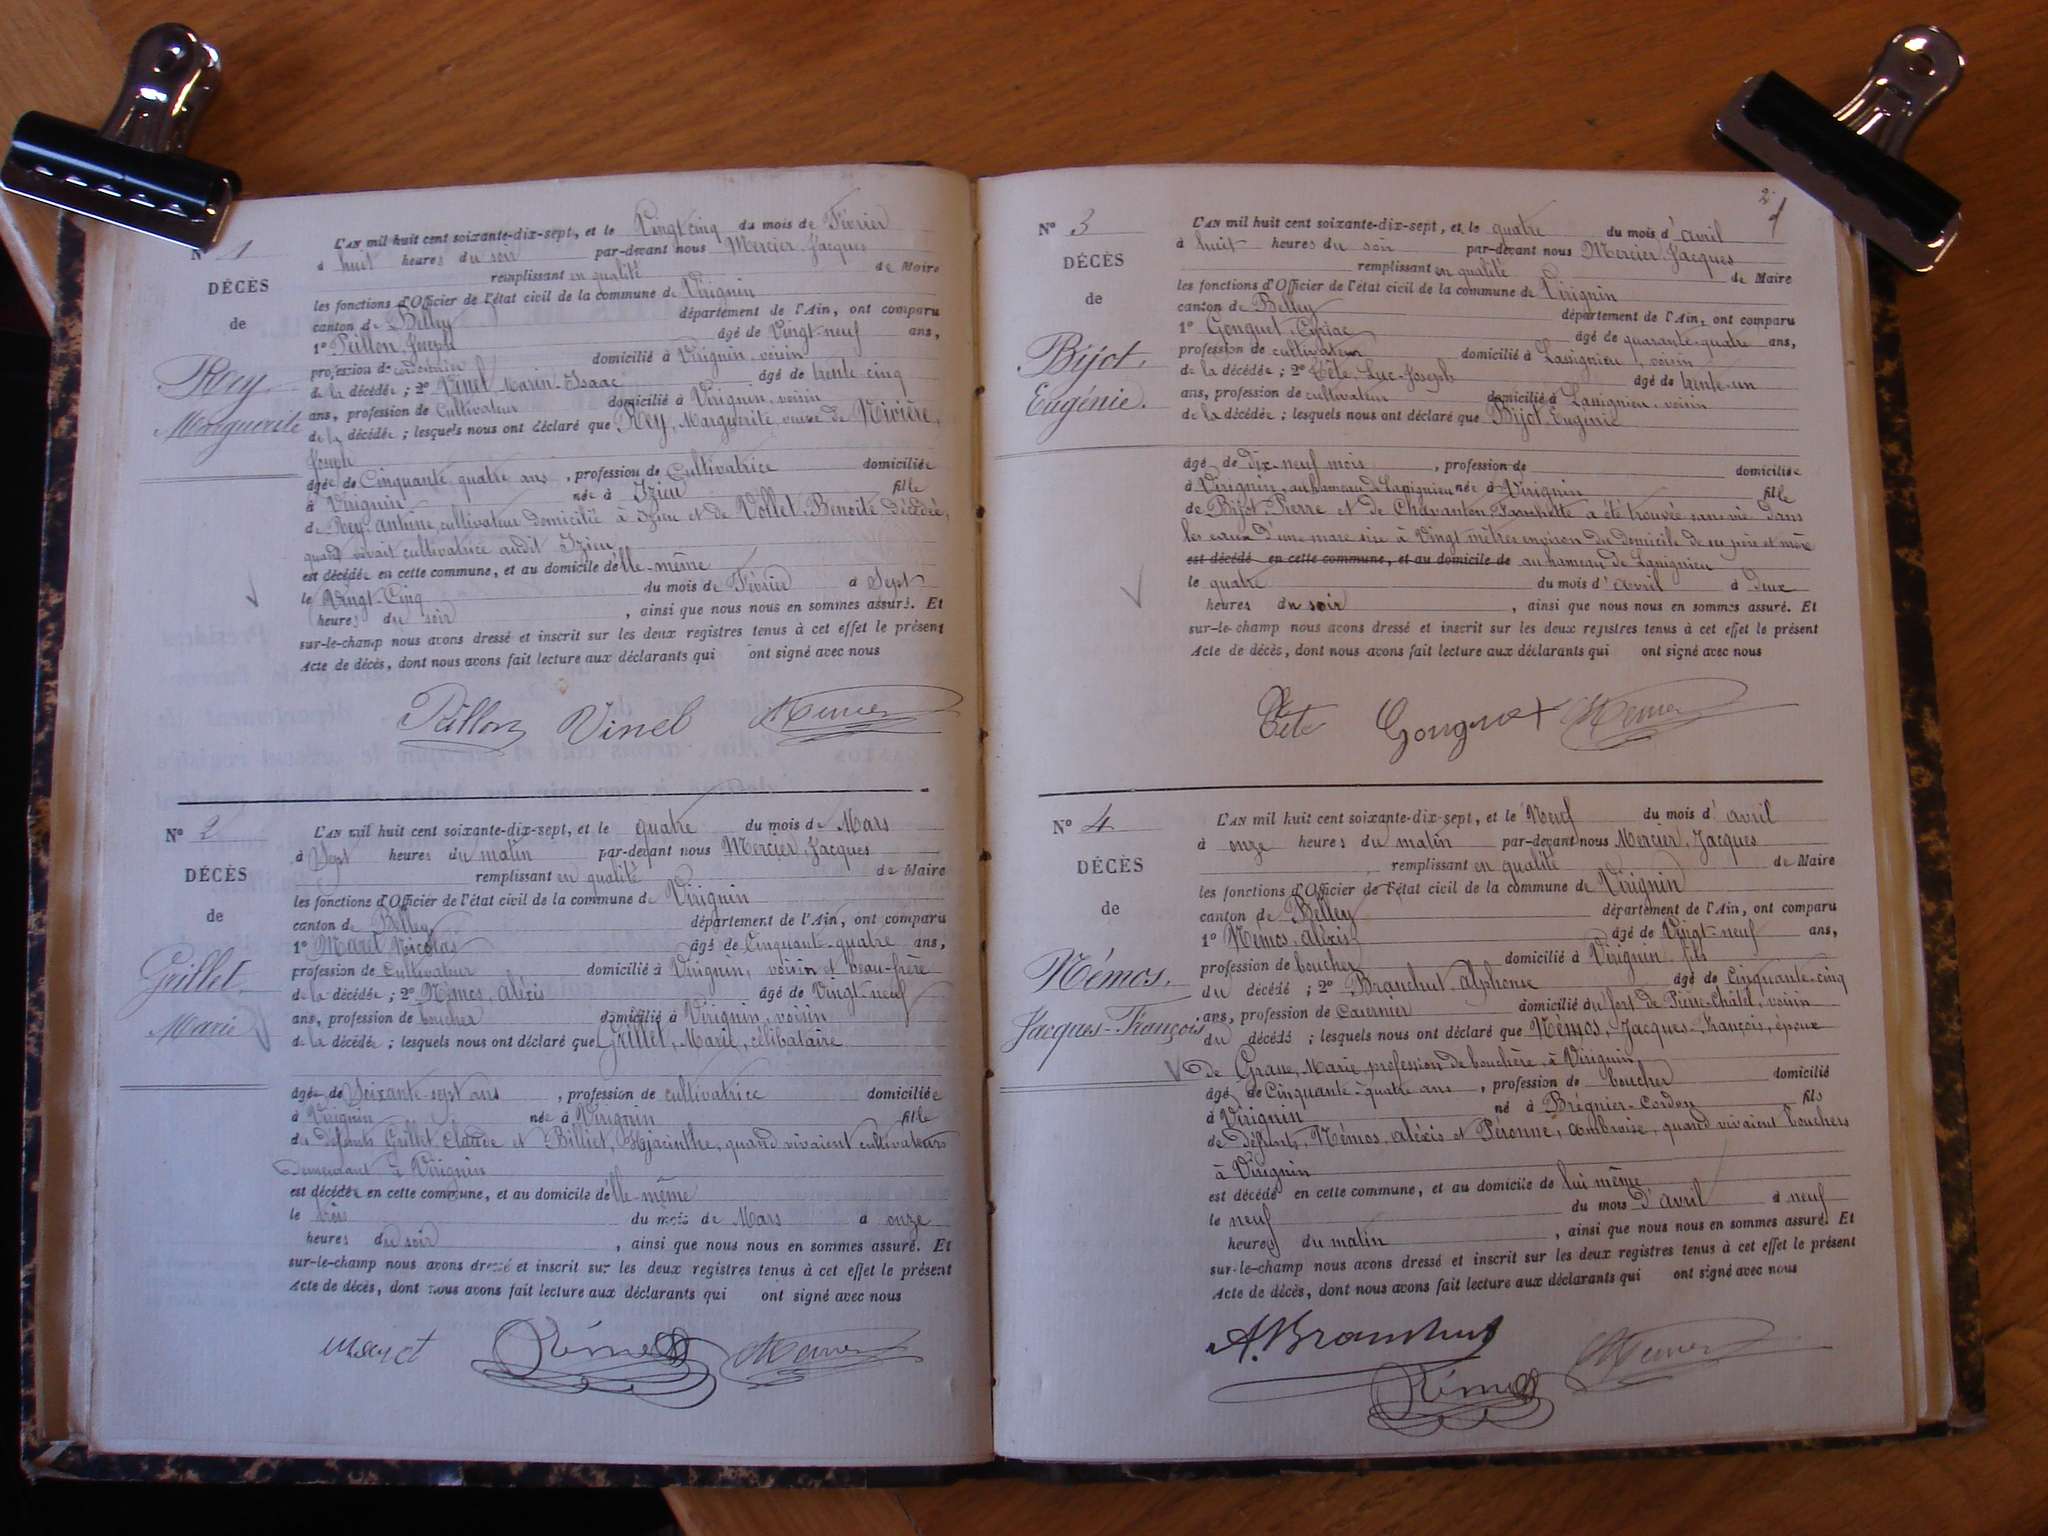 N° 1
DÉCÈS
de
Rey
Marguerite
L'AN mil huit cent soixante-dix-sept, et le Vingt cinq du mois de Février
à huit heures du soir par-devant nous Mercier, Jacques
remplissant en qualité de Maire
les fonctions d'Officier de l'état civil de la commune de Virignin
canton de Belley département de l'Ain, ont comparu
1° Peillon, Joseph âgé de Vingt-neuf ans,
profession de domicilié à Virignin, voisin
de la décédée ; 2° Vinel Marin-Isaac âgé de trente-cinq
ans, profession de Cultivateur domicilié à Virignin, voisin
de la décédée ; lesquels nous ont déclaré que Rey, Marguerite, veuve de Rivière,
Joseph
âgée de Cinquante quatre ans, profession de Cultivatrice domiciliée
à Virignin née à Izieu fille
de Rey antoine, cultivateur domicilié à Izieu et de Vollet-Benoîte décédée,
quand vivait cultivatrice audit Izieu
est décédée en cette commune, et au domicile d'elle-même
le Vingt-Cinq du mois de Février à Sept
heures du soir, ainsi que nous nous en sommes assuré. Et
sur-le-champ nous avons dressé et inscrit sur les deux registres tenus à cet effet le présent
Acte de décès, dont nous avons fait lecture aux déclarants qui ont signé avec nous
Peillon Vinel Mercier
N° 2
DÉCÈS
de
Grillet
Marie
L'AN mil huit cent soixante-dix-sept, et le quatre du mois de Mars
à Sept heures du matin par-devant nous Mercier, Jacques
remplissant en qualité de Maire
les fonctions d'Officier de l'état civil de la commune de Virignin
canton de Belley département de l'Ain, ont comparu
1° Maret Nicolas âgé de Cinquante-quatre ans,
profession de Cultivateur domicilié à Virignin, voisin et beau-frère
de la décédée ; 2° Némos, aléxis âgé de Vingt-neuf
ans, profession de boucher domicilié à Virignin, voisin
de la décédée ; lesquels nous ont déclaré que Grillet, Marie, célibataire
âgée de Soixante-sept ans, profession de cultivatrice domiciliée
à Virignin née à Virignin fille
des défunts Grillet, Claude et Billiet, Hyacinthe, quand vivaient cultivateurs
Demeurant à Virignin
est décédée en cette commune, et au domicile d'elle-même
le trois du mois de Mars à onze
heures du soir, ainsi que nous nous en sommes assuré. Et
sur-le-champ nous avons dressé et inscrit sur les deux registres tenus à cet effet le présent
Acte de décès, dont nous avons fait lecture aux déclarants qui ont signé avec nous
Maret Némos Mercier
2
N° 3
DÉCÈS
de
Bijot,
Eugénie.
L'AN mil huit cent soixante-dix-sept, et le quatre du mois d'avril
à huit heures du soir par-devant nous Mercier, Jacques
remplissant en qualité de Maire
les fonctions d'Officier de l'état civil de la commune de Virignin
canton de Belley département de l'Ain, ont comparu
1° Gonguet, Cyriac âgé de quarante-quatre ans,
profession de cultivateur domicilié à Lassignieu, voisin
de la décédée ; 2° Tête, Luc-Joseph âgé de trente-un
ans, profession de cultivateur domicilié à Lassignieu, voisin
de la décédée ; lesquels nous ont déclaré que Bijot, Eugénie
âgé de dix-neuf mois, profession de domiciliée
à Virignin, au hameau de Lassignieu née à Virignin fille
de Bijot-Pierre et de Chavanton a été trouvée sans vie dans
les eaux d'une mare sise à Vingt mètres environ du domicile de ses père et mère
est décédé en cette commune, et au domicile de au hameau de Lassignieu
le quatre du mois d'avril à deux
heures du soir, ainsi que nous nous en sommes assuré. Et
sur-le-champ nous avons dressé et inscrit sur les deux registres tenus à cet effet le présent
Acte de décès, dont nous avons fait lecture aux déclarants qui ont signé avec nous
Tête Gonguet Mercier
N° 4
DÉCÈS
de
Némos,
Jacques-François
L'AN mil huit cent soixante-dix-sept, et le Neuf du mois d'avril
à onze heures du matin par-devant nous Mercier, Jacques
remplissant en qualité de Maire
les fonctions d'Officier de l'état civil de la commune de Virignin
canton de Belley département de l'Ain, ont comparu
1° Némos, aléxis âgé de Vingt-neuf ans,
profession de boucher domicilié à Virignin, fils
du décédé ; 2° Branchut, alphonse âgé de Cinquante-cinq
ans, profession de Casernier domicilié au fort de Pierre-Châtel, voisin
du décédé ; lesquels nous ont déclaré que Némos, Jacques-François, époux
de Marie, profession de bouchère, à Virignin,
âgé de Cinquante-quatre ans, profession de boucher domicilié
à Virignin né à Brégnier-Cordon fils
de défunts, Némos, aléxis et Péronne, ambroise, quand vivaient bouchers
à Virignin
est décédé en cette commune, et au domicile de lui même
le neuf du mois d'avril à neuf
heures du matin, ainsi que nous nous en sommes assuré. Et
sur-le-champ nous avons dressé et inscrit sur les deux registres tenus à cet effet le présent
Acte de décès, dont nous avons fait lecture aux déclarants qui ont signé avec nous
A. Branchut Mercier
Némos